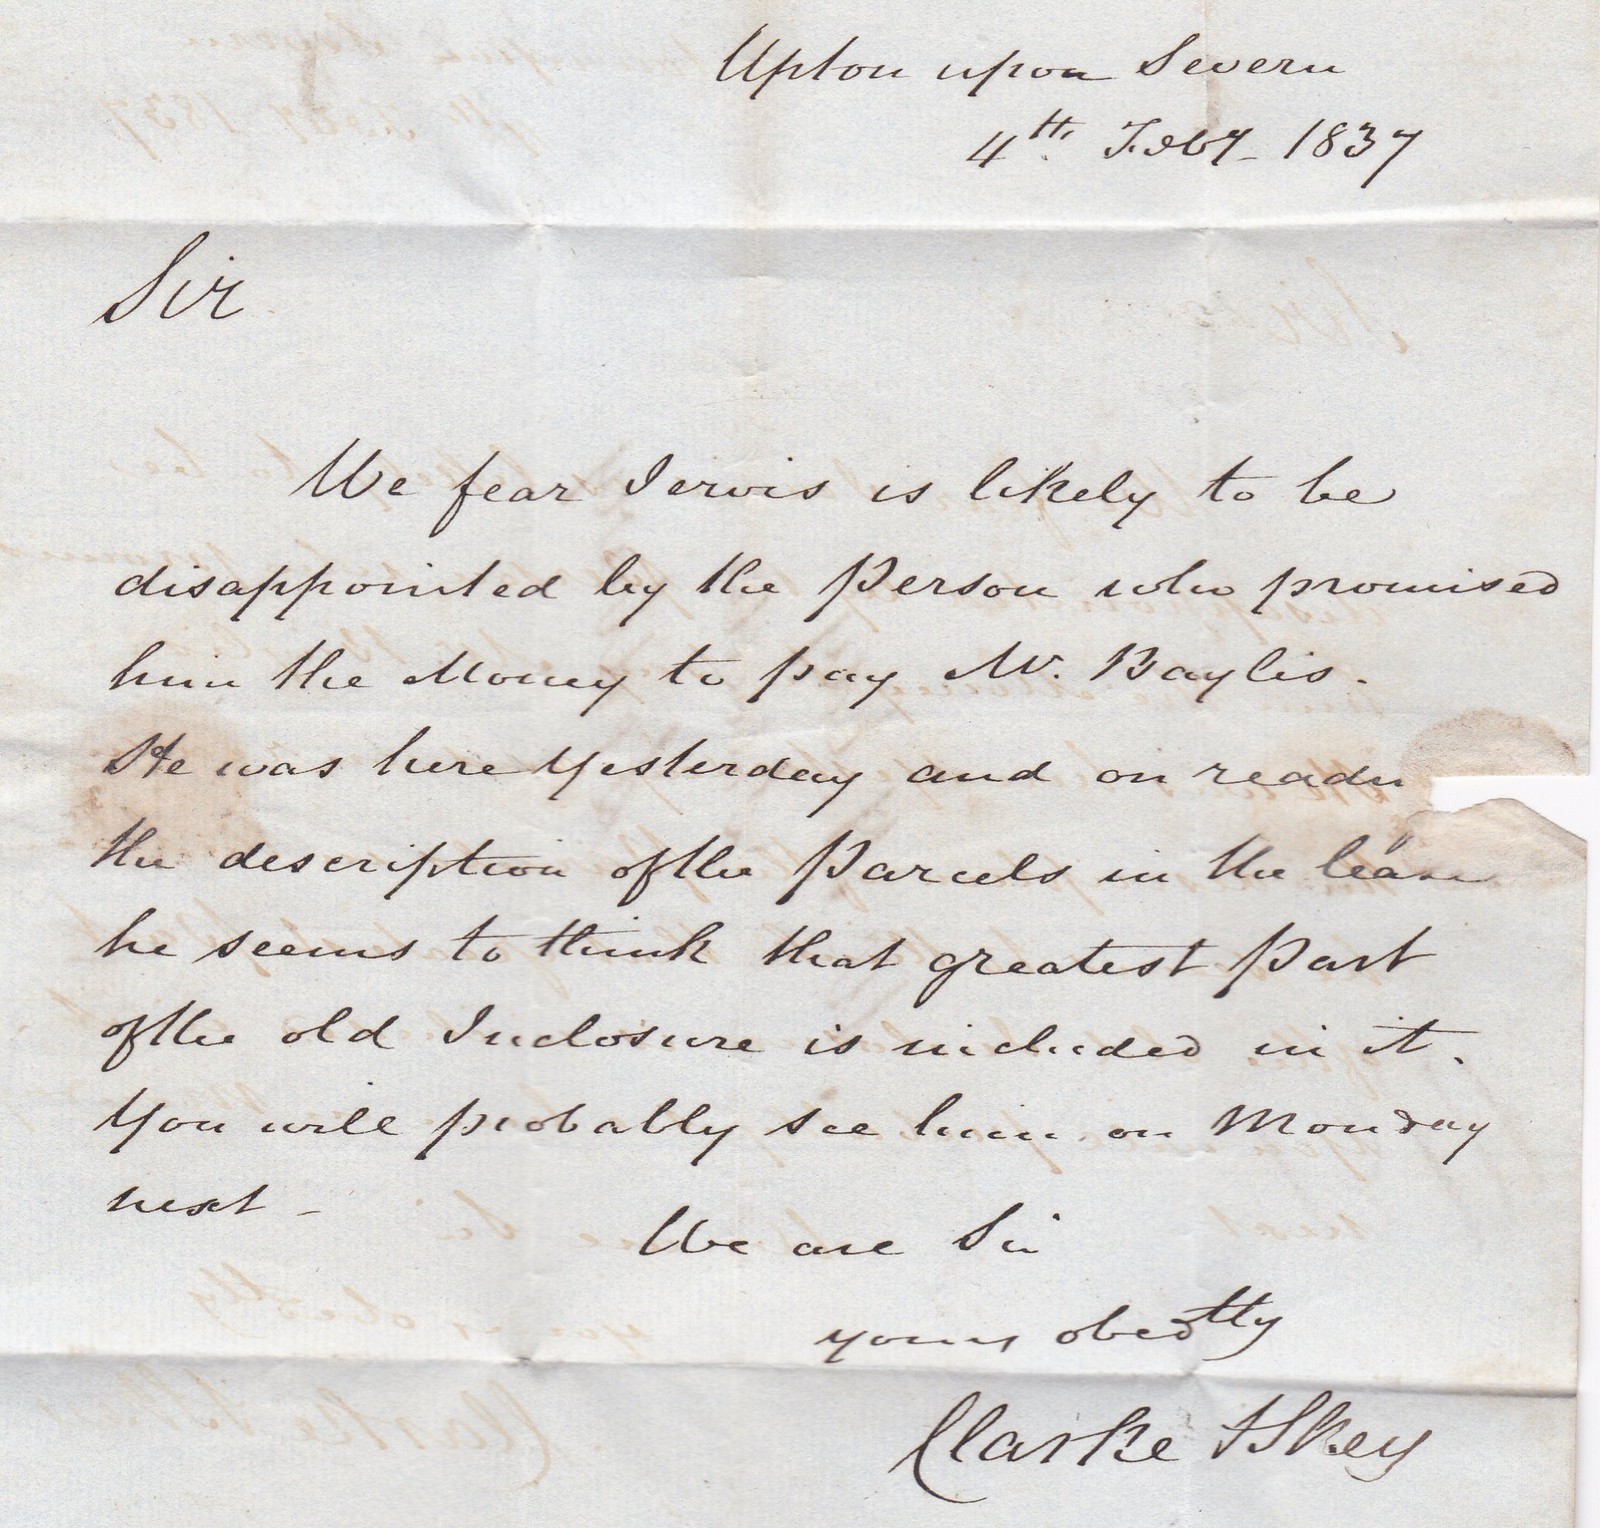 Upton upon Severn
4th. Feby. 1837
Sir
We fear Jervis is likely to be
disappointed by the Person who promised
him the Money to pay Mr. Baylis.
He was here yesterday and on readi
the description of the Parcels in the lease
he seems to think that greatest Part
of the old Inclosure is included in it.
You will probably see him on Monday
next -
We are Sir
yours obedtly
Clarke & Skey